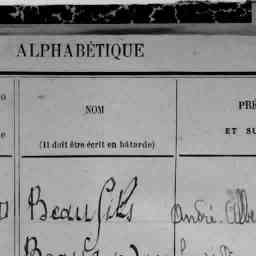 ALPHABÉTIQUE
NOM
PRÉ
(Il doit être écrit en bâtarde)
ET SU
Beaufils André Albe